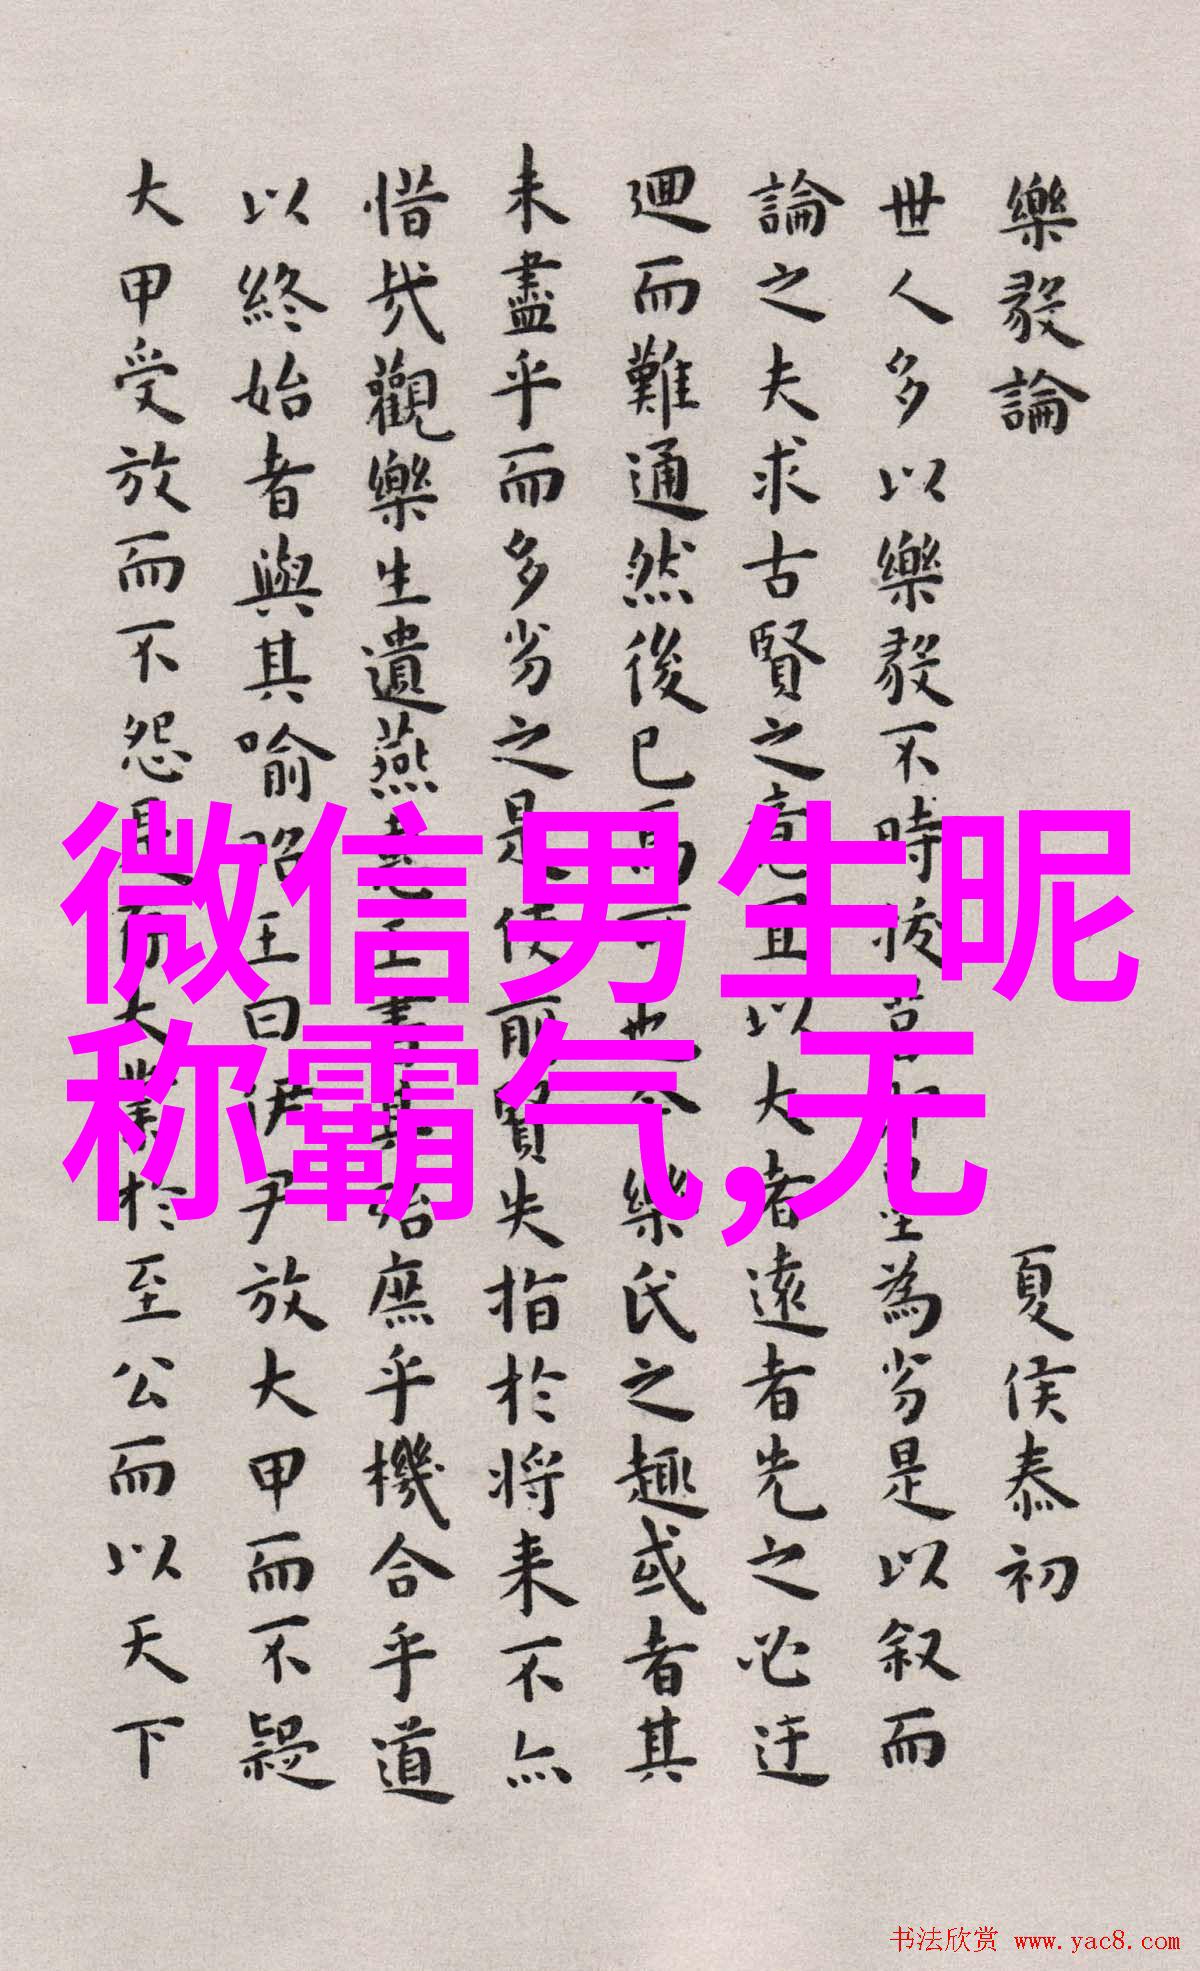 樂毅論 夏侯泰初
世人多以樂毅不時拔莒即墨為劣是以叙而
論之夫求古賢之意宜以大者遠者先之必迂
迴而難通然後已焉可也今樂氏之趣或者其
未盡乎而多劣之是使前賢失指於将来不亦
惜哉觀樂生遺燕惠王書其殆庶乎機合乎道
以終始者與其喻昭王曰伊尹放大甲而不疑
大甲受放而不怨是存大業於至公而以天下
微信男生昵
称霸气,无
书法欣赏 www.yac8.com